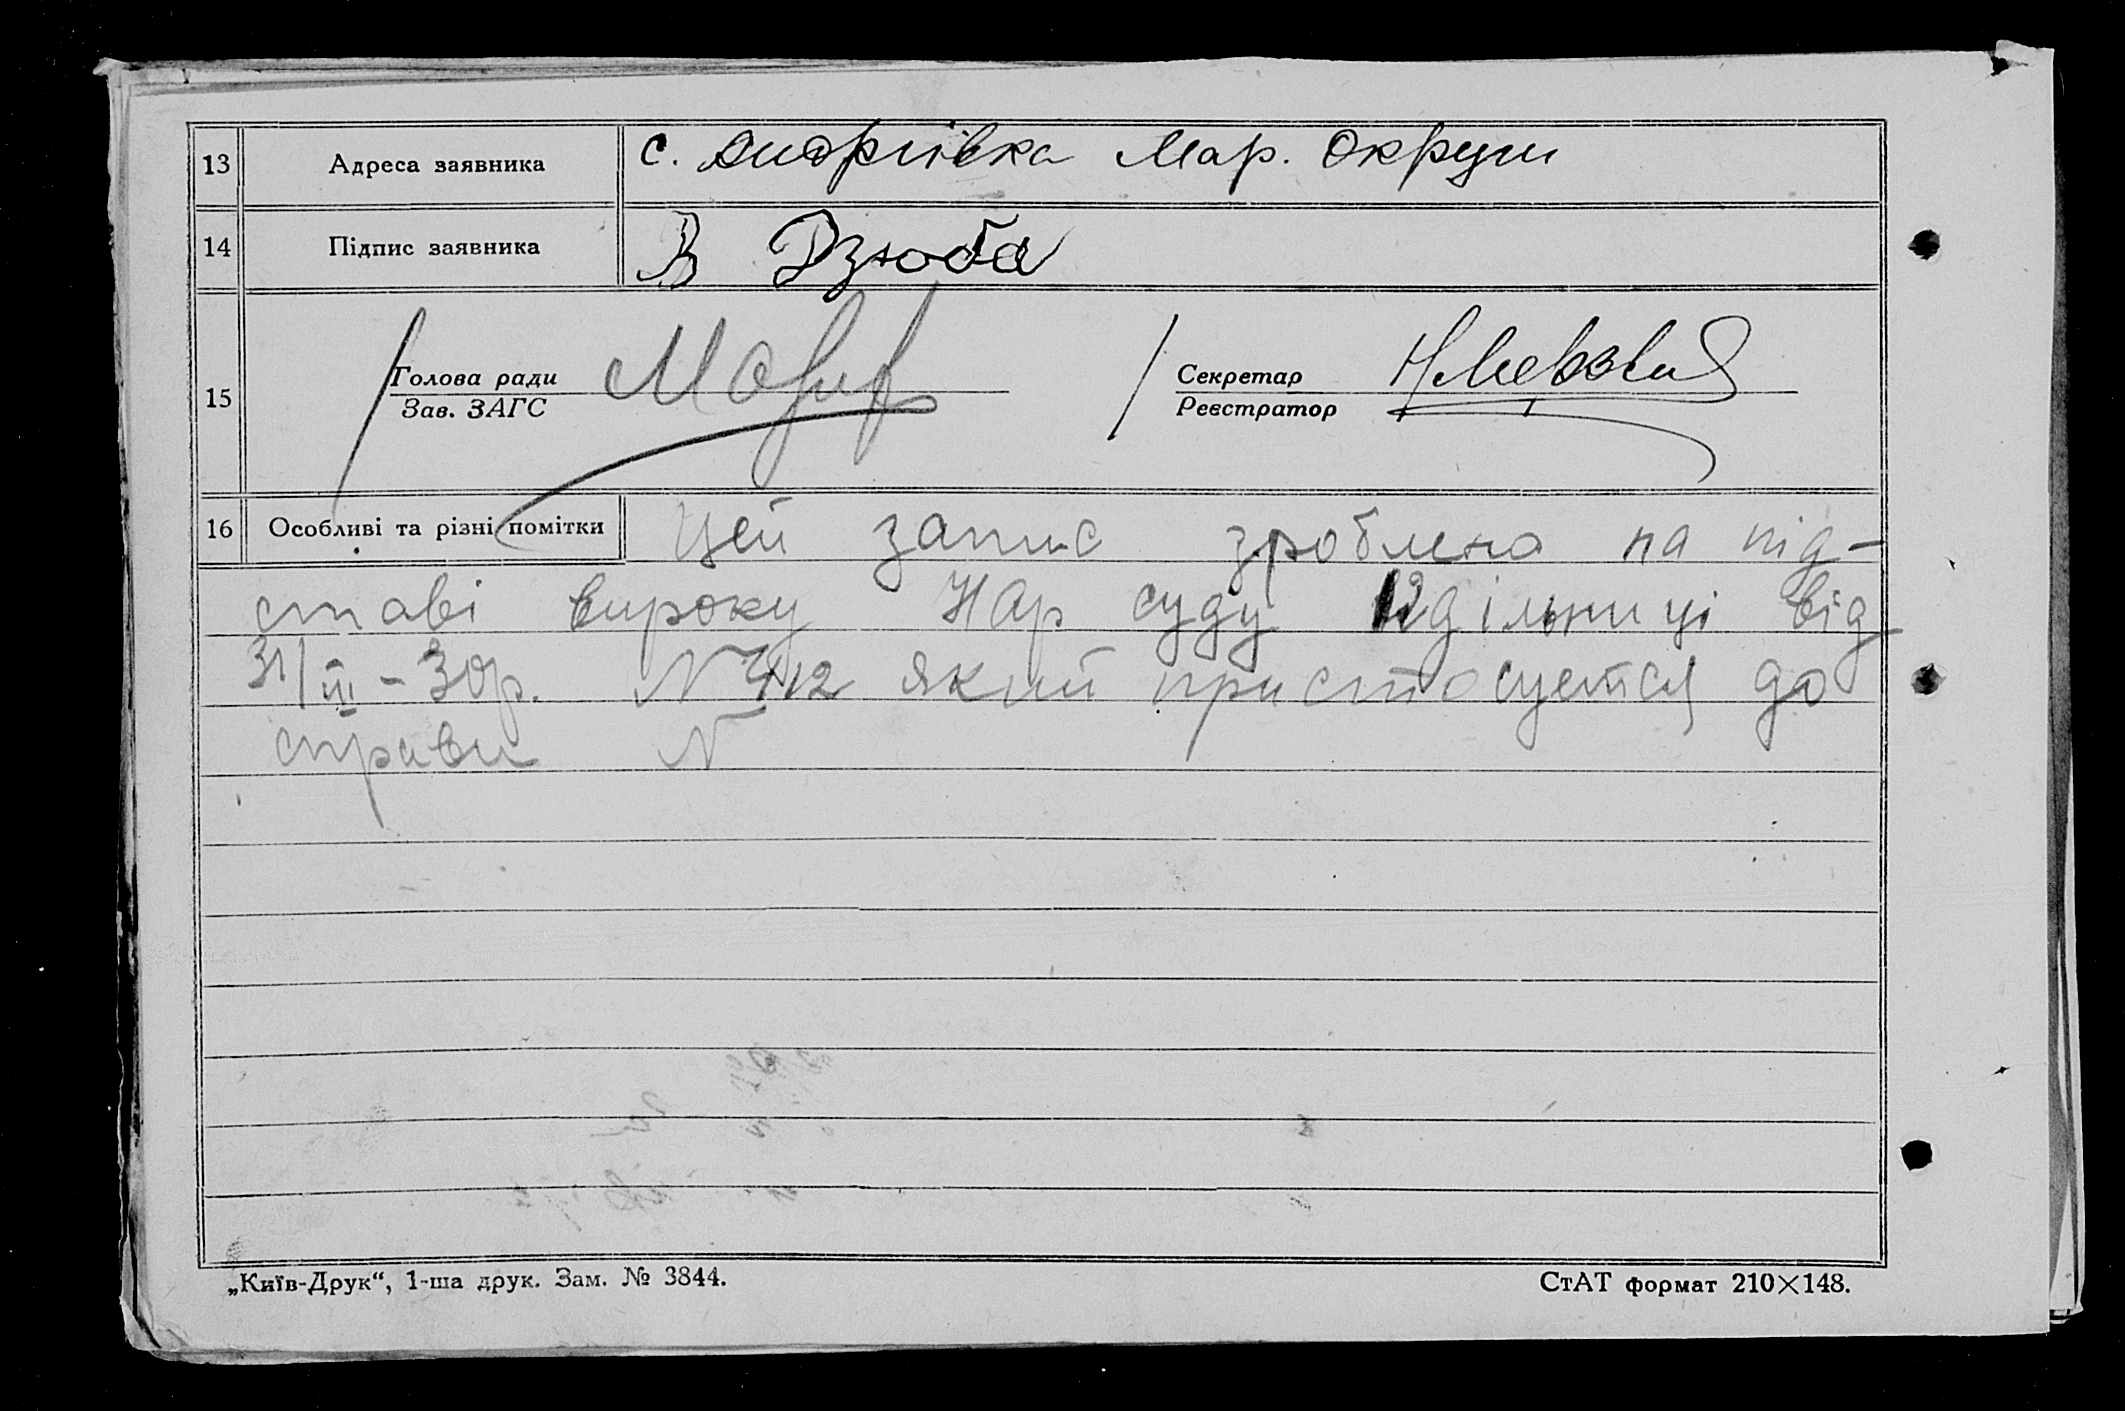 13 Адреса заявника с. Андріївка Мар. Округи
14 Підпис заявника В Дзюба
15 Голова ради Секретар
Зав. ЗАГС Реєстратор
16 Особливі та різні помітки Цей запис зроблено на під-
ставі вироку Нар суду 12 дільниці від
31/III-30р. № 412 який пристосуется до
справи №
„Київ-Друк“, 1-ша друк. Зам. № 3844. СтАТ формат 210×148.